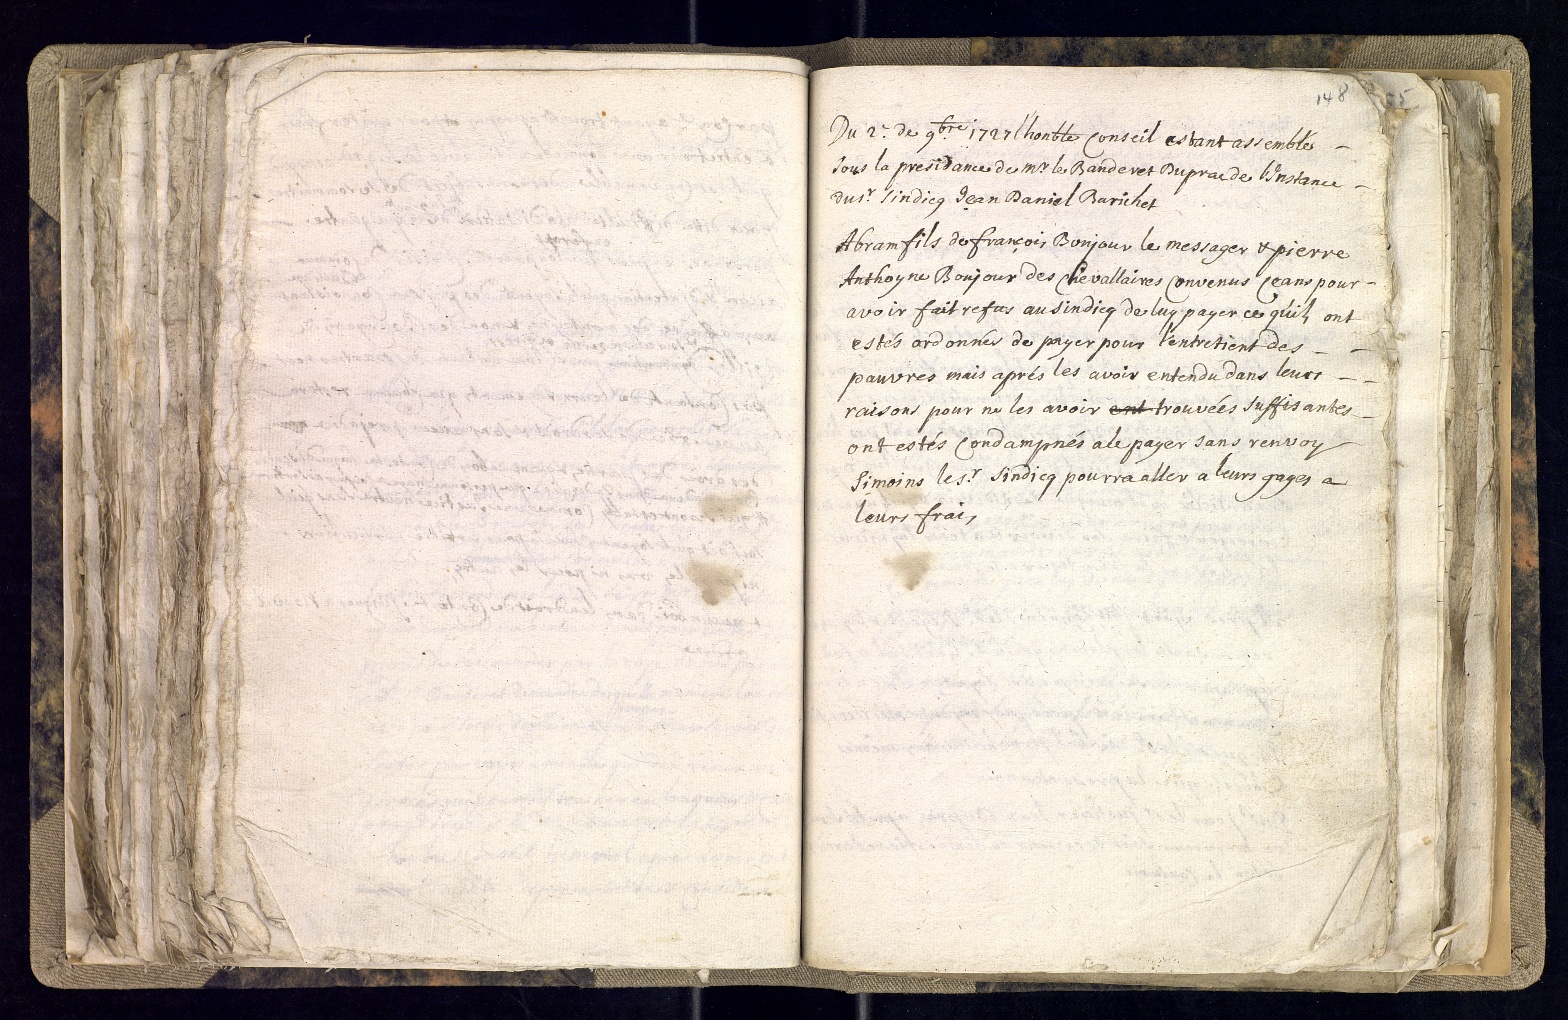 148
Du 2.e de 9bre 1727 l'honble Conseil estant assemblés
sous la presidance de mr. le Banderet Duprac de L'instance
du sr. Sindicq Jean Daniel Barichet
Abram fils de françois Bonjour le messager & pierre
Anthoyne Bonjour des Chevallaires Convenus Ceans pour
avoir fait refus au sindicq de luy payer ce quils ont
estés ordonnés de payer pour l'entretient des
pauvres mais aprés les avoir entendu dans leurs
raisons pour ne les avoir ont trouvées suffisantes
ont estés Condampnés a le payer sans renvoy
Simoins le sr. Sindicq pourra aller a leurs gages a
leurs frais